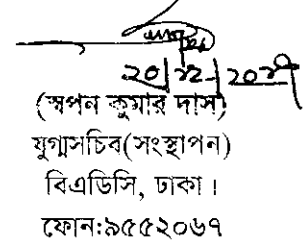 (স্বপন কুমার দাস)
যুগ্মসচিব(সংস্থাপন)
বিএডিসি, ঢাকা।
ফোন:৯৫৫২০৬৭